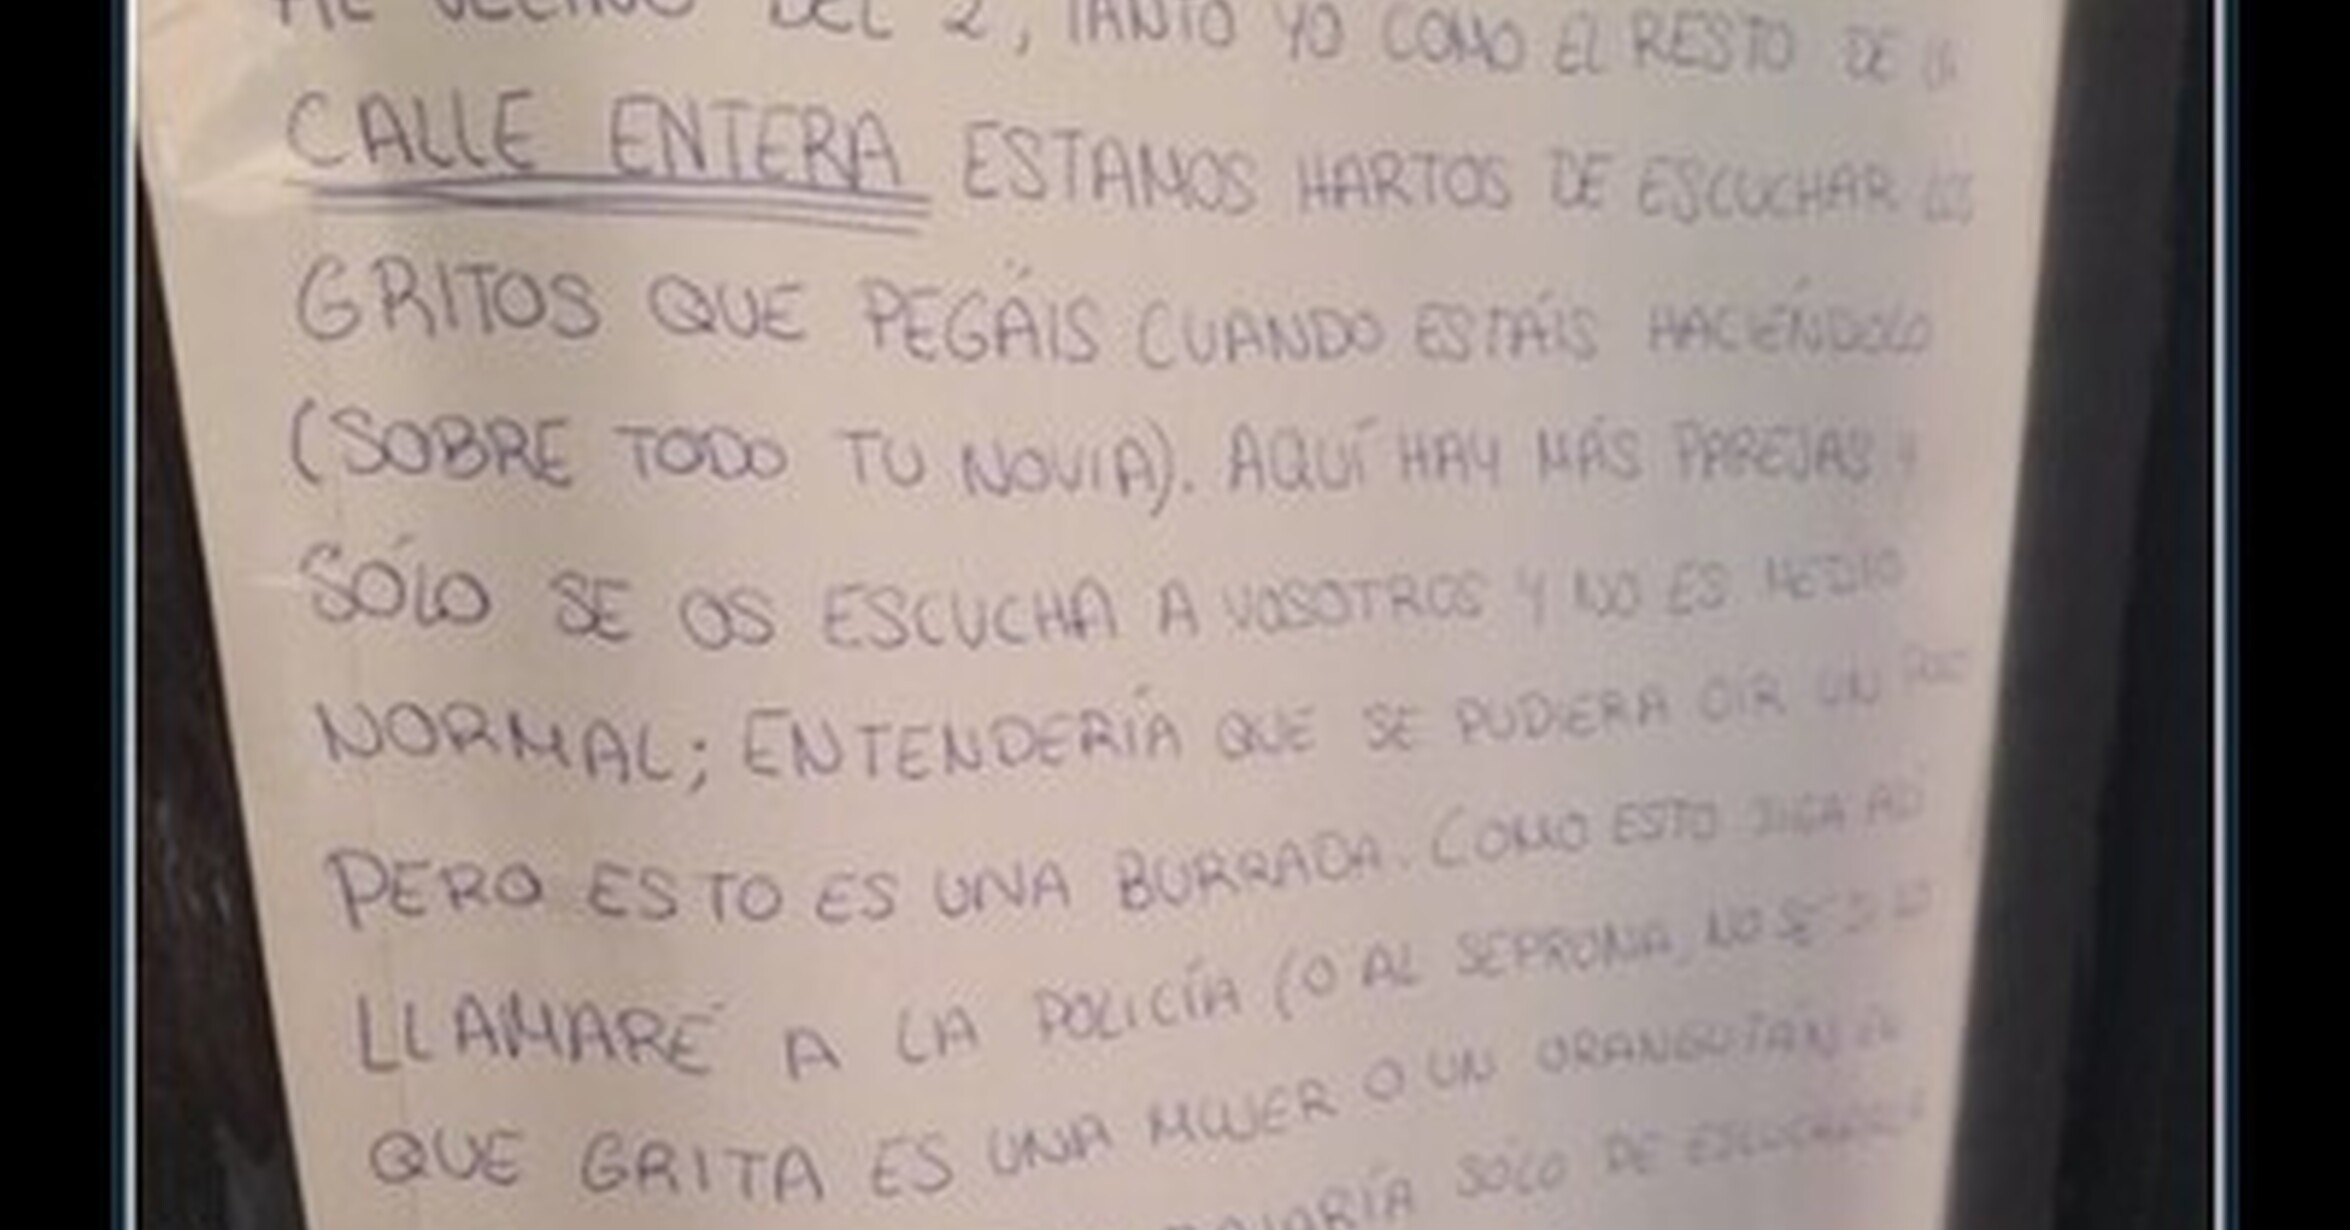 AL VECINO DEL 2, TANTO YO COMO EL RESTO DE LA
CALLE ENTERA ESTAMOS HARTOS DE ESCUCHAR LOS
GRITOS QUE PEGÁIS CUANDO ESTÁIS HACIÉNDOLO
(SOBRE TODO TU NOVIA). AQUÍ HAY MÁS PAREJAS Y
SÓLO SE OS ESCUCHA A VOSOTROS Y NO ES MEDIO
NORMAL; ENTENDERÍA QUE SE PUDIERA OIR UN POCO
PERO ESTO ES UNA BURRADA. COMO ESTO SIGA ASÍ
LLAMARÉ A LA POLICÍA (O AL SEPRONA, NO SÉ SI LO
QUE GRITA ES UNA MUJER O UN ORANGUTÁN
SÓLO DE